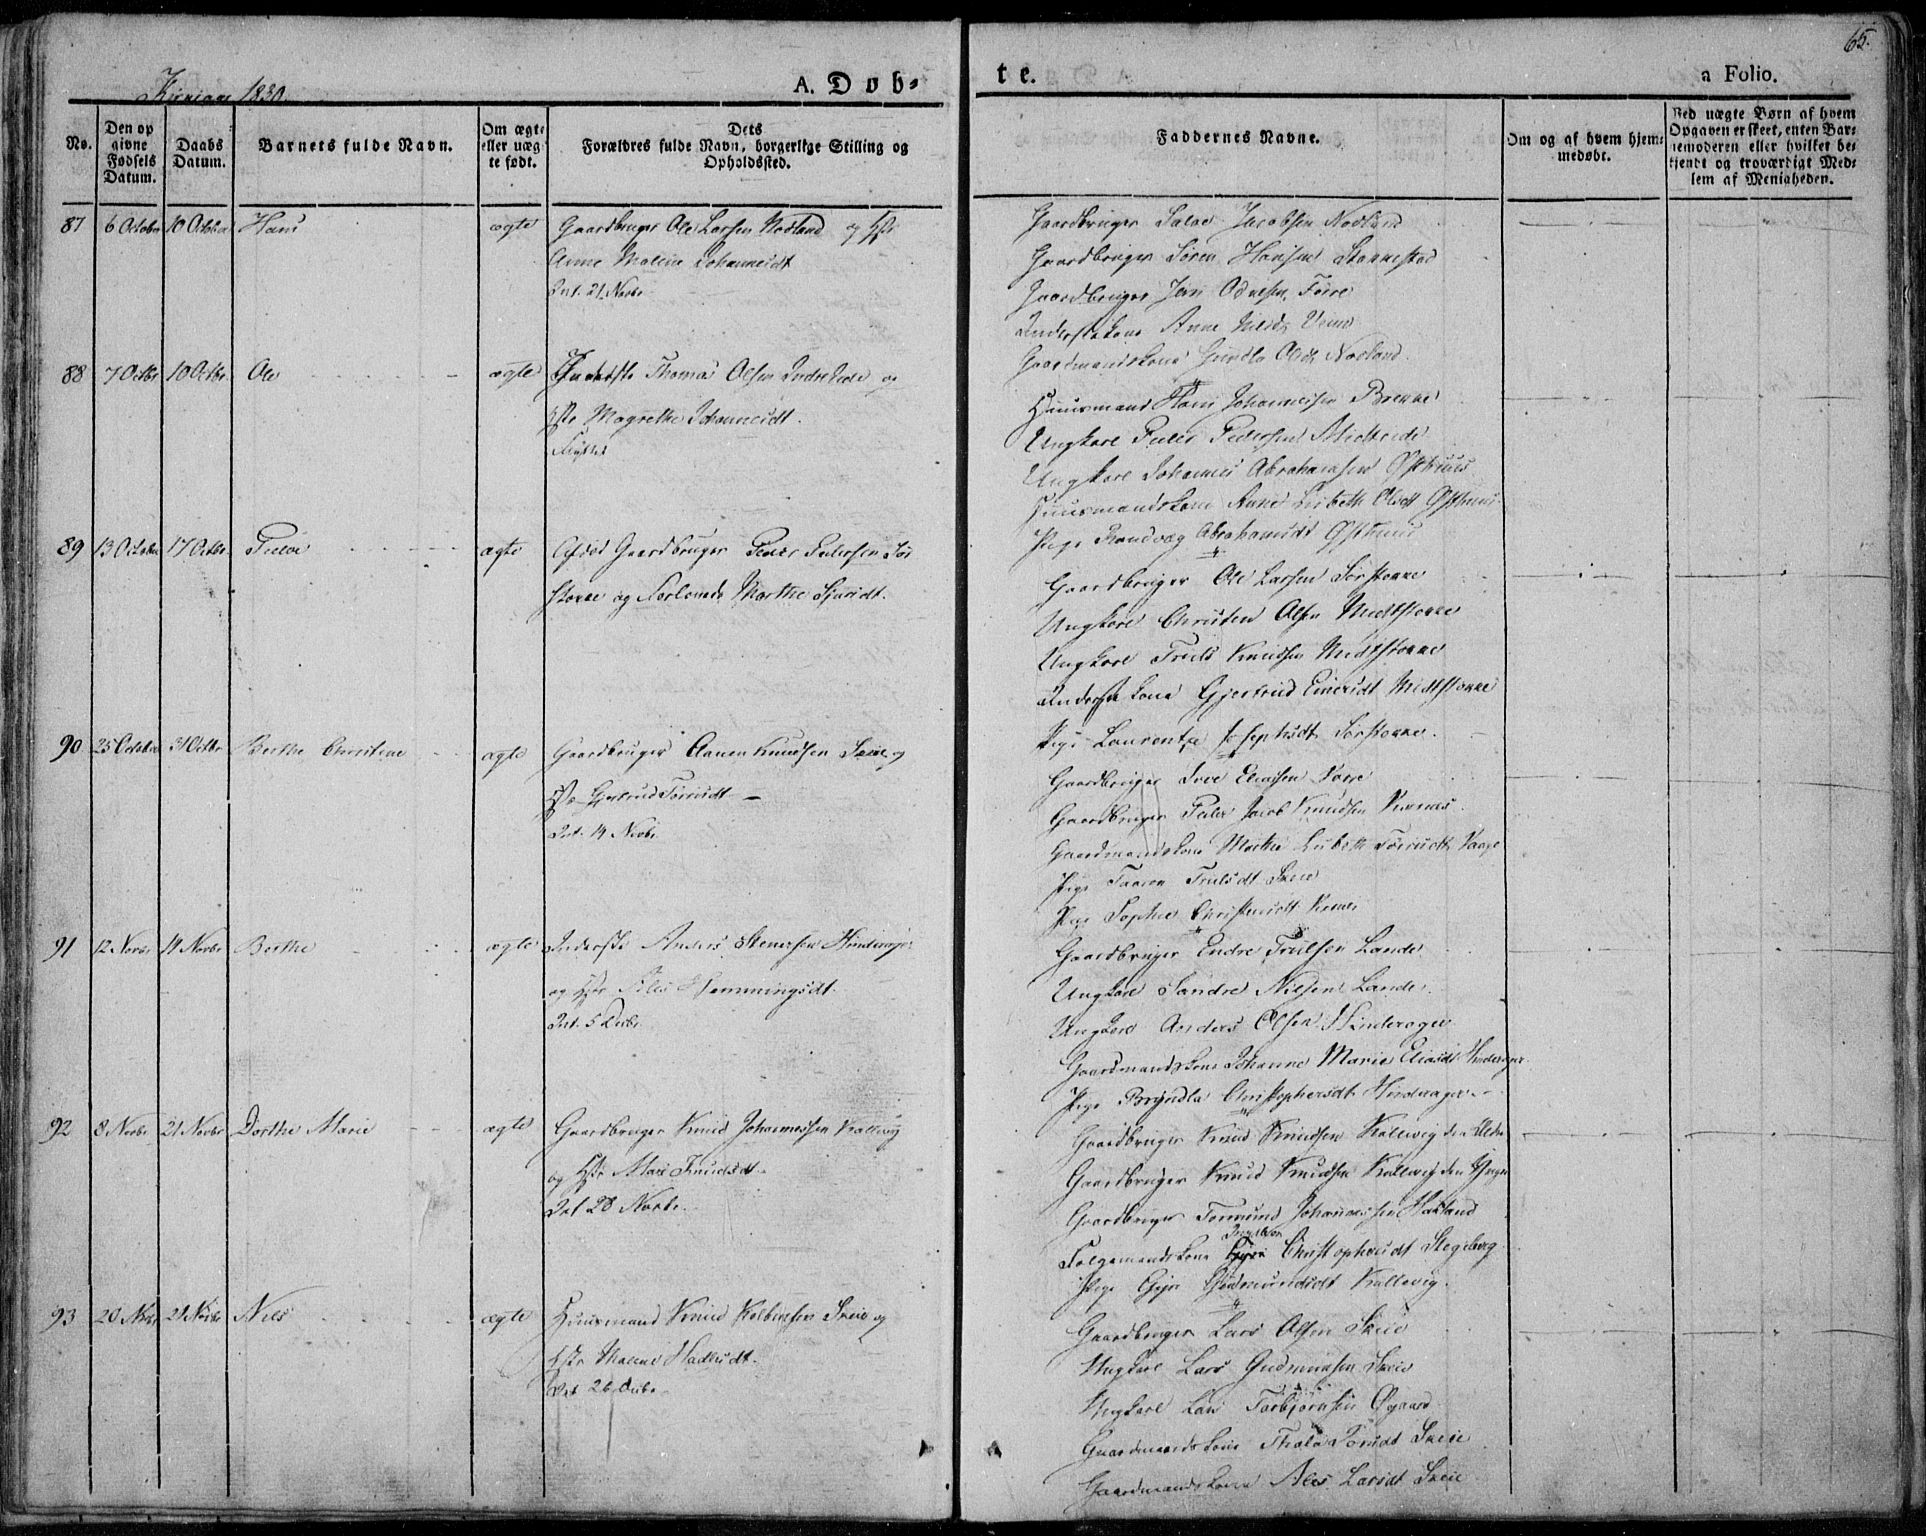 65.
Kirkiaar 1830.
A. Døb=
te.
a Folio.
No.
Den op
givne
Fødsels
Datum.
Daabs
Datum.
Barnets fulde Navn.
Om ægte
eller uæg
te født.
Dets
Forældres fulde Navn, borgerlige Stilling og
Opholdssted.
Faddernes Navne.
Om og af hvem hjem=
medøbt.
Ved uægte Børn af hvem
Opgaven er skeet, enten Bar=
nemoderen eller hvilket be=
kjendt og troværdigt Med=
lem af Menigheden.
87 6 October 10 October Hans ægte Gaardbruger Ole Larsen Nodland og Hstr
Anne Malene Johannesdt
Int. 21 Novbr
Gaardbruger Salve Jacobsen Nodland
Gaardbruger Søren Hansen Stonnestad
Gaardbruger Jens Odnesen Førre
Inderstekone Anne Nielsdt
Gaardmandskone Gundla Olsdt Nodland
88 7 Octbr 10 Octbr Ole ægte Inderste Thomas Olsen Indreeide og
Hstr Magrethe Johannesdt.
Flyttet
Huusmand Hans Johannessen Brekke
Ungkarl Peder Pedersen Midteide
Ungkarl Johannes Abrahamsen Østhuus
Huusmandskone Anne Lisbeth Olsdt Østhuus
Pige Randvæg Abrahamsdt Østhuus
89 13 October 17 Octbr ægte Afdød Gaardbruger Peder Pedersen Sør
Stokke og Forlovede Marthe
Gaardbruger Ole Larsen Sørstokke
Ungkarl Christen Olsen Midtstokke
Ungkarl Truls Knudsen Midtstokke
Inderstekone Gjertrud Einersdt Midtstokke
Pige Laurentze Josephsdt Sørstokke
90 25 October 31 Octbr Berthe Christene ægte Gaardbruger Aanen Knudsen Skeie og
Hstr Gjertrud
Int. 14 Novbr
Gaardbruger Iver Eliassen
Gaardbruger Peder Jacob Knudsen
Gaardmandskone Marthe Lisbeth Vaage
Pige Taaren Trulsdt Skeie
Pige Sophie Christensdt
91 12 Novbr 14 Novbr Berthe ægte Inderste Anders Stenersen Hinderager
og Hstr Ales Hemmingsdt.
Int. 5 Decbr
Gaardbruger Endre Trulsen Lande
Ungkarl Sandre Nilsen Lande
Ungkarl Anders Olsen Hinderager
Gaardmandskone Johanne Marie Eliasdt Hinderager
Pige Bryndla Christophersdt Hinderager
92 8 Novbr 21 Novbr Dorthe Marie ægte Gaardbruger Knud Johannessen Kallevig
og Hstr Mari Knudsdt.
Int 28 Novbr.
Gaardbruger Knud Knudsen Kallevig den Ældre
Gaardbruger Knud Knudsen Kallevig den Yngre
Gaardbruger Tormund Johannessen
Folgemandskone Christophersdt Stegeberg
Pige Gyri Gudmundsdt Kallevig
93 20 Novbr 21 Novbr Nils ægte Huusmand Knud Kolbensen Skeie og
Hstr Malene
Int 26 Decbr
Gaardbruger Lars Olsen Skeie
Ungkarl Lars Gudmundsen Skeie
Ungkarl Lars Torbjørnsen Øgaard
Gaardmandskone Skeie
Gaardmandskone Ales Larsdt Skeie